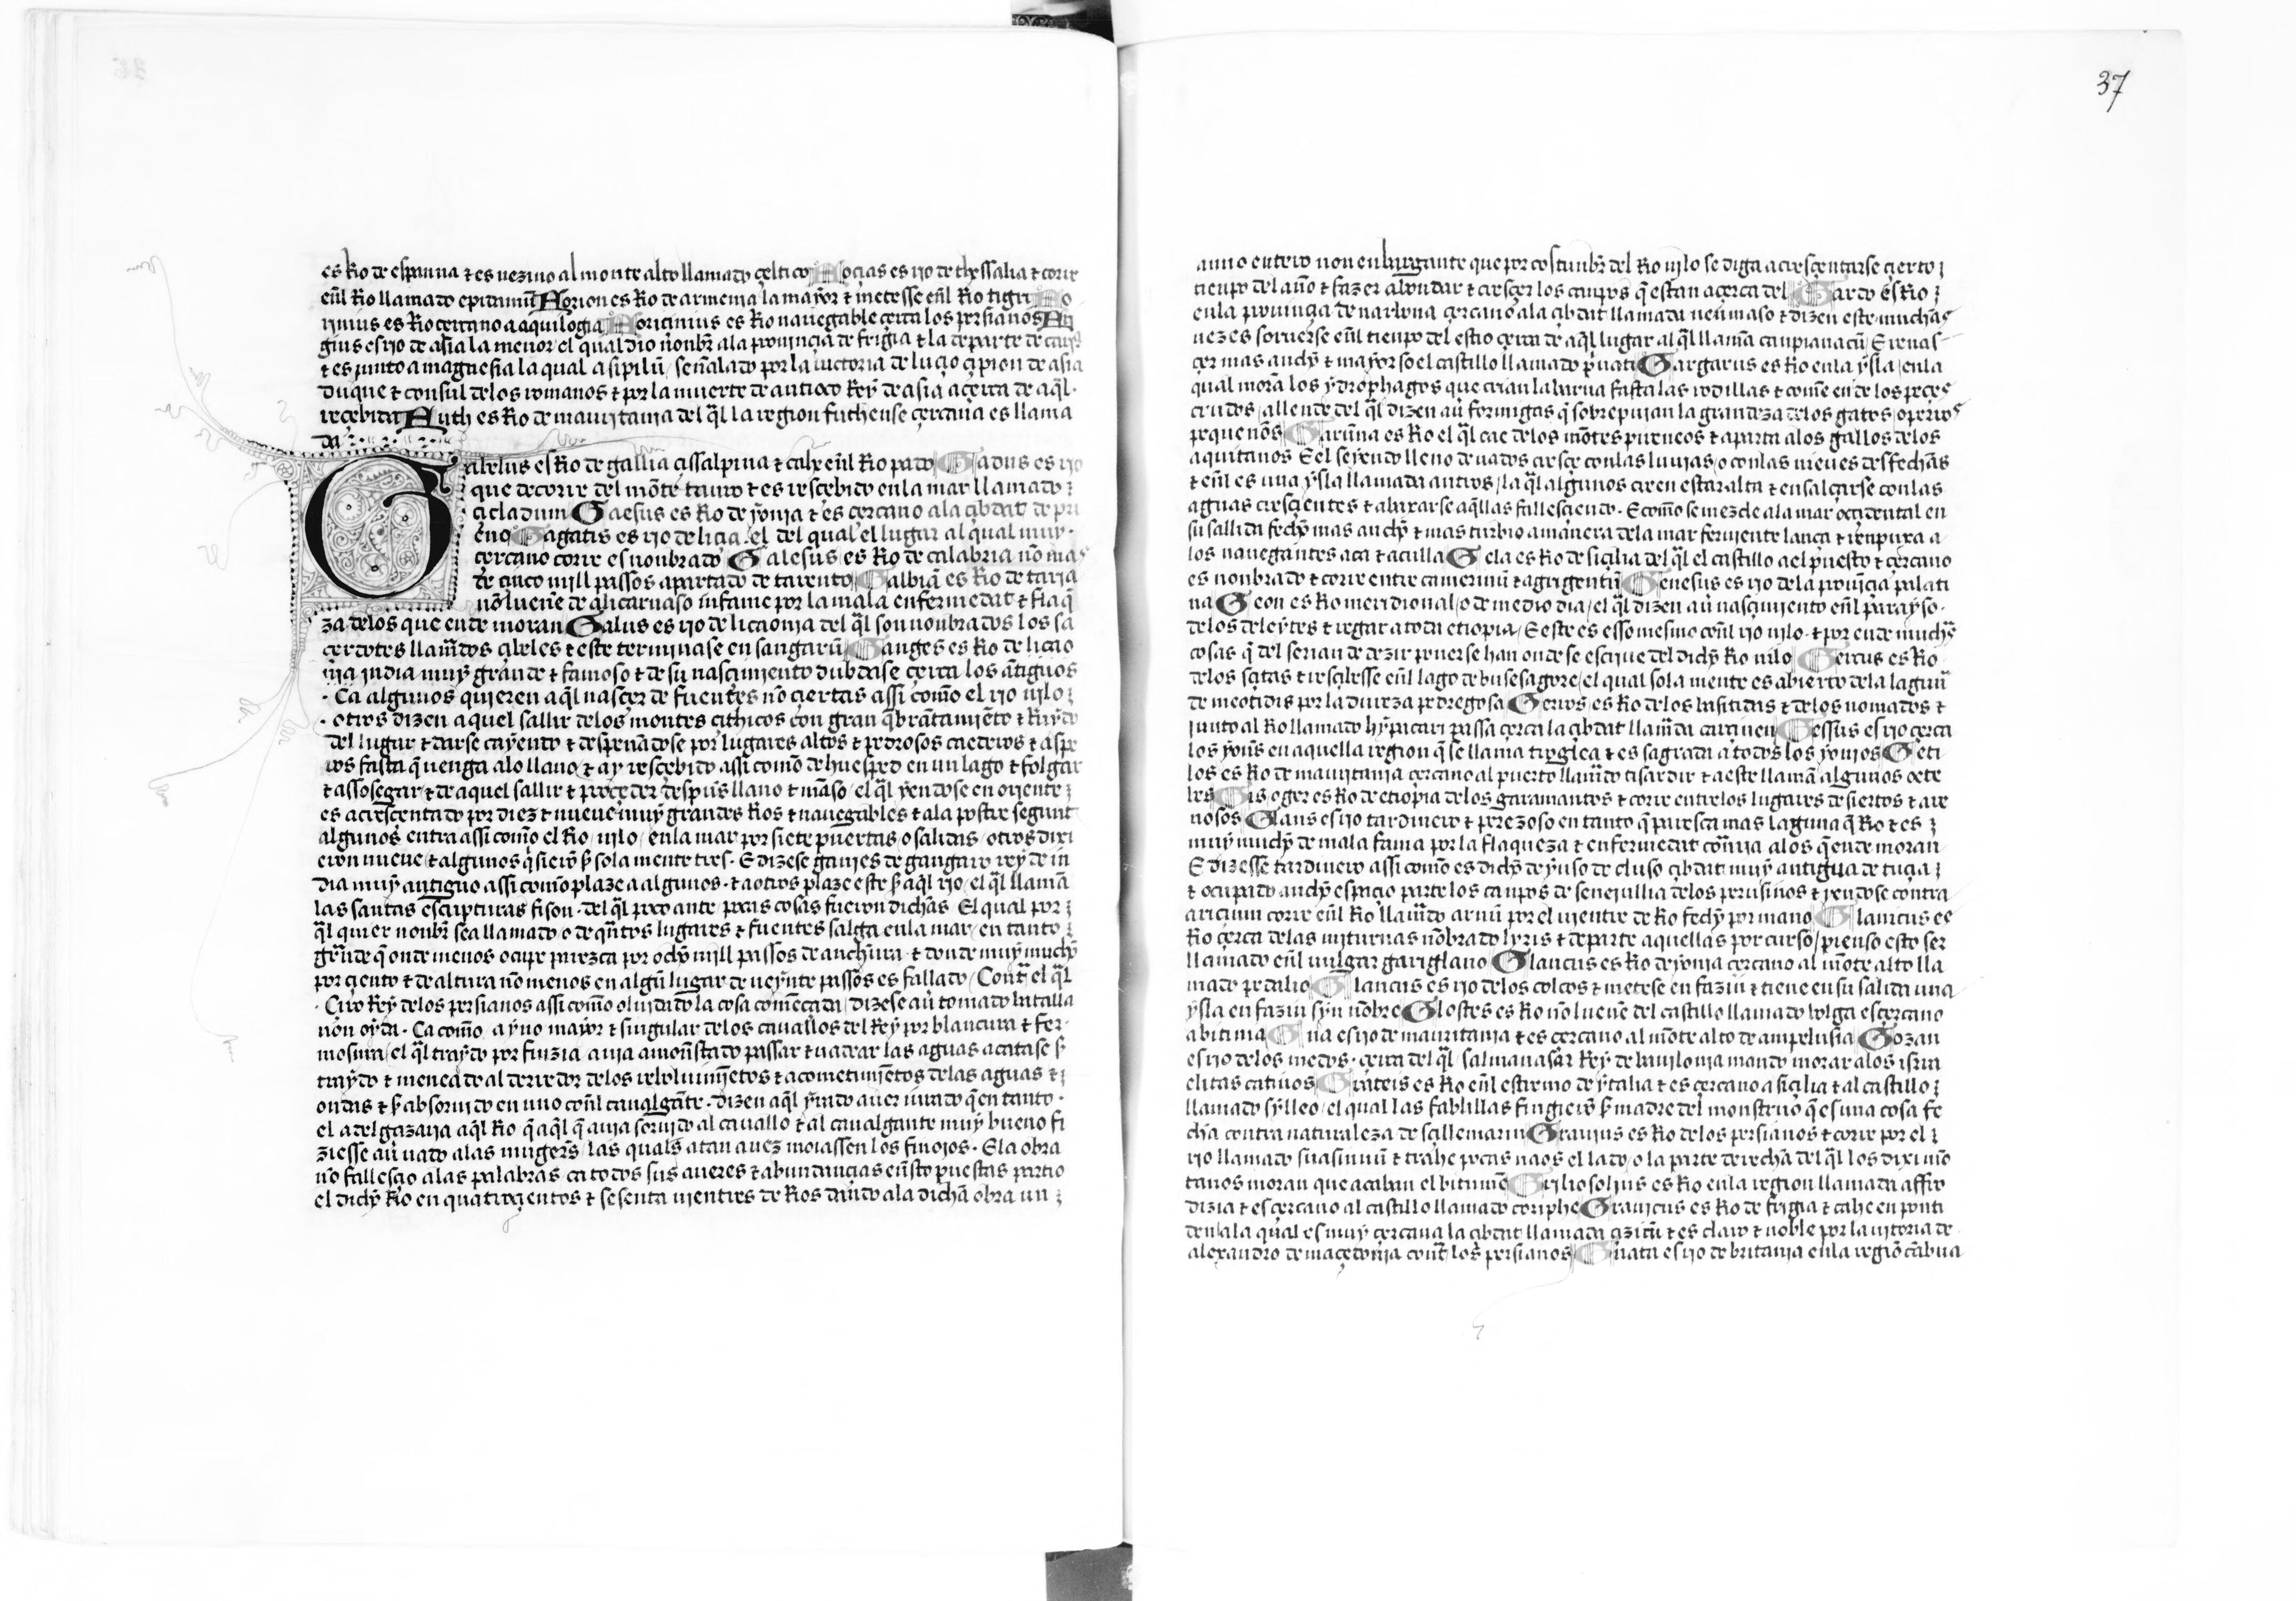 es Rio de espanna & es uezino al monte alto llamado çeltico Focias es rio de thessalia & corre
eñl Rio llamado epidamū Forion es Rio de armenia la mayor & metesse eñl Rio tigri Fo
es Rio çercano a aquilogia Formicinius es Rio nauegable çerca los persianos Fri
gius es rio de asia la menor el qual dio nonbr̄ ala prouinçia de frigia & la departe de
& es junto a magnesia la qual a sipilū señalado por la uictoria de luçio çipion de asia
duque & consul delos romanos & por la muerte de antioco Rey de asia açerca de aq̄l
reçebida Futh es Rio de mauritania del q̄l la region futhense çercana es llama
da
Gabelus es Rio de gallia çissalpina & cahe eñl Rio pado Gadus es rio
que decorre del mōte tauro & es resçebido enla mar llamado
çicladum Gaesus es Rio de yonia & es çercano ala çibdat de pri
eno Gagatis es rio de liçia el del qual el lugar al qual muy
çercano corre es nonbrado Galesus es Rio de calabria nō mas
de çinco mill passos apartado de tarento Galbiā es Rio de taria
nō lueñe de alicarnaso infame por la mala enfermedat & flaq̄
za delos que ende moran Galus es rio de licaonia del q̄l son nonbrados los sa
çerdotes llamados çibeles & este terminase en sangarū Ganges es Rio de
india muy grande & famoso & de su nasçimiento dubdase çerca los antiguos
Ca algunos quieren aq̄l nasçer de fuentes nō çiertas assi como el rio nilo
otros dizen aquel sallir delos montes cithicos con gran q̄brātamiēto & Ruydo
del lugar & darse cayendo & despeñādose por lugares altos & pedrosos caederos & aspe
ros fasta q̄ uenga alo llano & ay resçebido assi como de huesped en un lago & folgar
& assosegar & de aquel sallir & proçeder despues llano & māso el q̄l yendose en oriente
es acresçentado por diez & nueue muy grandes Rios & nauegables & ala postre segunt
algunos entra assi como el Rio nilo enla mar por siete puertas o salidas otros dixi
eron nueue & algunos q̄sierō sola mente tres E dizese ganjes de gangaro rey de in
dia muy antiguo assi como plaze a algunos & a otros plaze este aq̄l rio el q̄l llamā
las santas escripturas fison del q̄l poco ante pocas cosas fueron dichas El qual por
q̄l quier nonbr̄ sea llamado o de q̄ntos lugares & fuentes salga enla mar en tanto
grāde q̄ onde menos ocupe parezca por ocho mill passos de anchura & donde muy mucho
por çiento & de altura nō menos en algū lugar de ueynte passos es fallado Cont̄ el q̄l
Ciro Rey delos persianos assi como oluidado la cosa comēcada dizese aū tomado batalla
non oyda Ca como a yno mayor & singular delos cauallos del Rey por blancura & fer
mosura el q̄l traydo por fiuzia auia amonestado passar & uadear las aguas acatase
traydo & meneado al derredor delos reboluimiētos & acometimiētos delas aguas &
ondas & absoruido en uno coñl caualgāte dizen aq̄l yrado auer jurado q̄ en tanto
el adelgazaria aq̄l Rio q̄ aq̄l q̄ auia soruido al cauallo & al caualgante muy bueno fi
ziesse aū uado alas mugeres las quales atan a uez moiassen los finojos E la obra
nō fallesçio alas palabras ca todos sus aueres & abundançias eñsto puestas partio
el dicho Rio en quatroçientos & sesenta uientres de Rios dando ala dicha obra un
37
anno entero non enbargante que por costunbr̄ del Rio nilo se diga acresçentarse çierto
tienpo del año & fazer abondar & cresçer los canpos q̄ estan açerca del Gardo es Rio
enla prouinçia de narbona çercano ala çibdat llamada neumaso & dizen este muchas
uezes soruerse eñl tienpo del estio çerca de aq̄l lugar al q̄l llamā canpianacū E renas
çer mas ancho & mayor so el castillo llamado priuati Gargarus es Rio enla ysla enla
qual morā los ydrophagos que crian la barua fasta las rodillas & comē ende los peçes
crudos allende del q̄l dizen aū formigas q̄ sobrepujan la grandeza delos gatos o perros
pequenos Garūna es Rio el q̄l cae delos mōtes pireneos & aparta alos gallos delos
aquitanos E el seyendo lleno de uados cresçe con las luuias o con las nieues desfechas
& eñl es una ysla llamada antros la q̄l algunos creen estar alta & ensalçarse con las
aguas cresçientes & abaxarse aq̄llas fallesçiendo E como se mezcle ala mar occidental en
su sallida fecho mas ancho & mas turbio a manera dela mar feruiente lança & renpuxa a
los nauegantes aca & aculla Gela es Rio de siçilia del q̄l el castillo ael puesto & çercano
es nonbrado & corre entre camerinū & agrigentū Genesus es rio dela prouīçia palati
na Geon es Rio meridional o de medio dia el q̄l dizen aū nasçimiento eñl parayso
delos deleytes & regar a toda etiopia E este es esso mesmo coñl rio nilo & por ende muchas
cosas q̄ del serian de dezir ponerse han onde se escriue del dicho Rio nilo Gercus es Rio
delos scitas & resçibesse eñl lago de busesagore el qual sola mente es abierto dela lagun̄
de meotidis por la dureza pedregosa Gerros es Rio delos basitidas & delos nomados &
junto al Rio llamado hypacari passa çerca la çibdat llamada carçinen Gessus es rio çerca
los yonis en aquella region q̄ se llama tirgica & es sagrada a todos los yonios Geti
los es Rio de mauritania çercano al puerto llamado risardir & a este llamā algunos oete
les Gis oger es Rio de etiopia delos garamantos & corre entre los lugares desiertos & are
nosos Glans es rio tardinero & perezoso en tanto q̄ paresca mas laguna q̄ Rio & es
muy mucho de mala fama por la flaqueza & enfermedat contraria alos q̄ ende moran
E dizesse tardinero assi como es dicho de yuso de cluso çibdat muy antigua de tuçia
& ocupado ancho espaçio parte los canpos de senejullia delos perusinos & yendose contra
aricium corre eñl Rio llamado arnū por el uientre de Rio fecho por mano Glanicus es
Rio çerca delas miturnas nōbrado lyris & departe aquellas por curso pienso esto ser
llamado eñl uulgar gariglano Glaucus es Rio de yonia çercano al mōte alto lla
mado pedalio Glaucus es rio delos colcos & metese en faziū & tiene en su salida una
ysla en faziu syn nōbre Glostes es Rio nō lueñe del castillo llamado bolga es çercano
a bitinia Gna es rio de mauritania & es çercano al mōte alto de ampelusia Gozan
es rio delos medos çerca del q̄l salmanasar Rey de babilonia mando morar alos isrra
elitas catiuos Grateis es Rio eñl estremo de ytalia & es çercano a siçilia & al castillo
llamado sylleo el qual las fablillas fingierō madre del monstruo q̄ es una cosa fe
cha contra naturaleza de scille marin Granjus es Rio delos persianos & corre por el
rio llamado suasininū & trahe pocas naos el lado o la parte derecha del q̄l los diximō
tanos moran que acaban el bitumē Griliosolius es Rio enla region llamada affro
dizia & es çercano al castillo llamado coriphe Granicus es Rio de frigia & cahe en ponti
denla la qual es muy çercana la çibdat llamada çizicū & es claro & noble por la uitoria de
alexandro de maçedonia cont̄ los persianos Gnata es rio de britania enla regiō